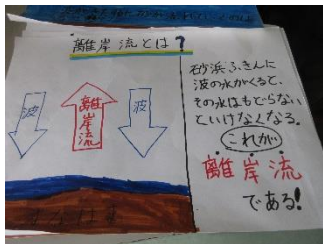 離岸流とは?
波
離岸流
波
砂浜ふきんに
波の水がくると、
その水はもどらない
といけなくなる。
これが
離岸流
である!